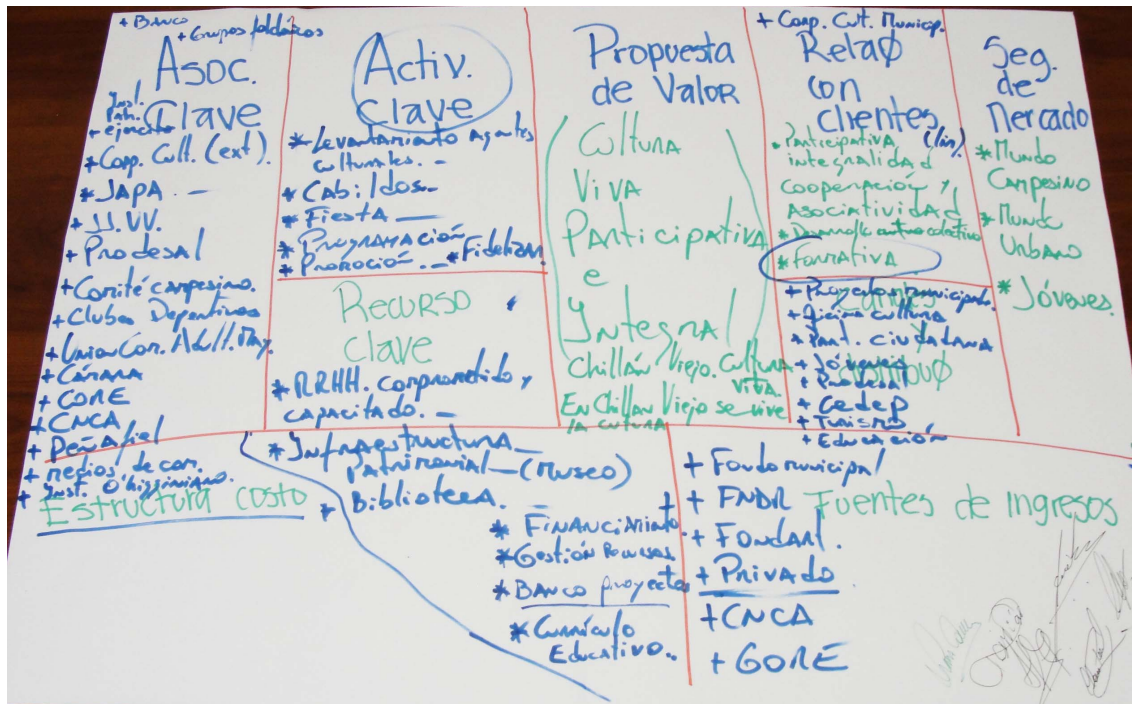 + Banco
+ Grupos folclóricos
Asoc.
Clave
Inst.
Patri.
+ ejercito
* Corp. Cult. (ext).
* JAPA. –
+ JJ.VV.
+ Prodesal
+ Comité campesino.
+ Clubes Deportivos
+ Union Com. Adult. May.
+ Cámara
+ CORE
+ CNCA
+ Peñafiel
+ medios de com.
+ Inst. O'higginiano.
Activ.
clave
* Levantamiento agentes
culturales. –
* Cabildos. –
* Fiesta –
* Programación
* Promoción. – * Fidelizar
Recurso
clave
* RRHH. comprometido y
capacitado. –
* Infraestructura –
Patrimonial – (Museo)
* Biblioteca. –
* Financiamiento
* Gestión Recursos
* Banco proyectos
* Currículo
Educativo..
Propuesta
de Valor
Cultura
Viva
Participativa
e
Integral
Chillán Viejo. Cultura
Viva.
En Chillan Viejo se vive
la cultura
+ Corp. Cult. Municip.
RelaØ
con
clientes
* Participativa (lin).
integralidad
cooperación y
Asociatividad
* Desarrollo centro colectivo
* formativa
+ Proyectos municipales.
+ Oficina cultura
+ Part. ciudadana
+ Jóvenes
+ Prodesal
+ Cedep
+ Turismo
+ Educación
Seg.
de
Mercado
* Mundo
Campesino
* Mundo
Urbano
* Jóvenes.
Estructura costo
Fuentes de ingresos
+ Fondo municipal
+ FNDR
+ Fondart.
+ Privado
+ CNCA
+ GORE